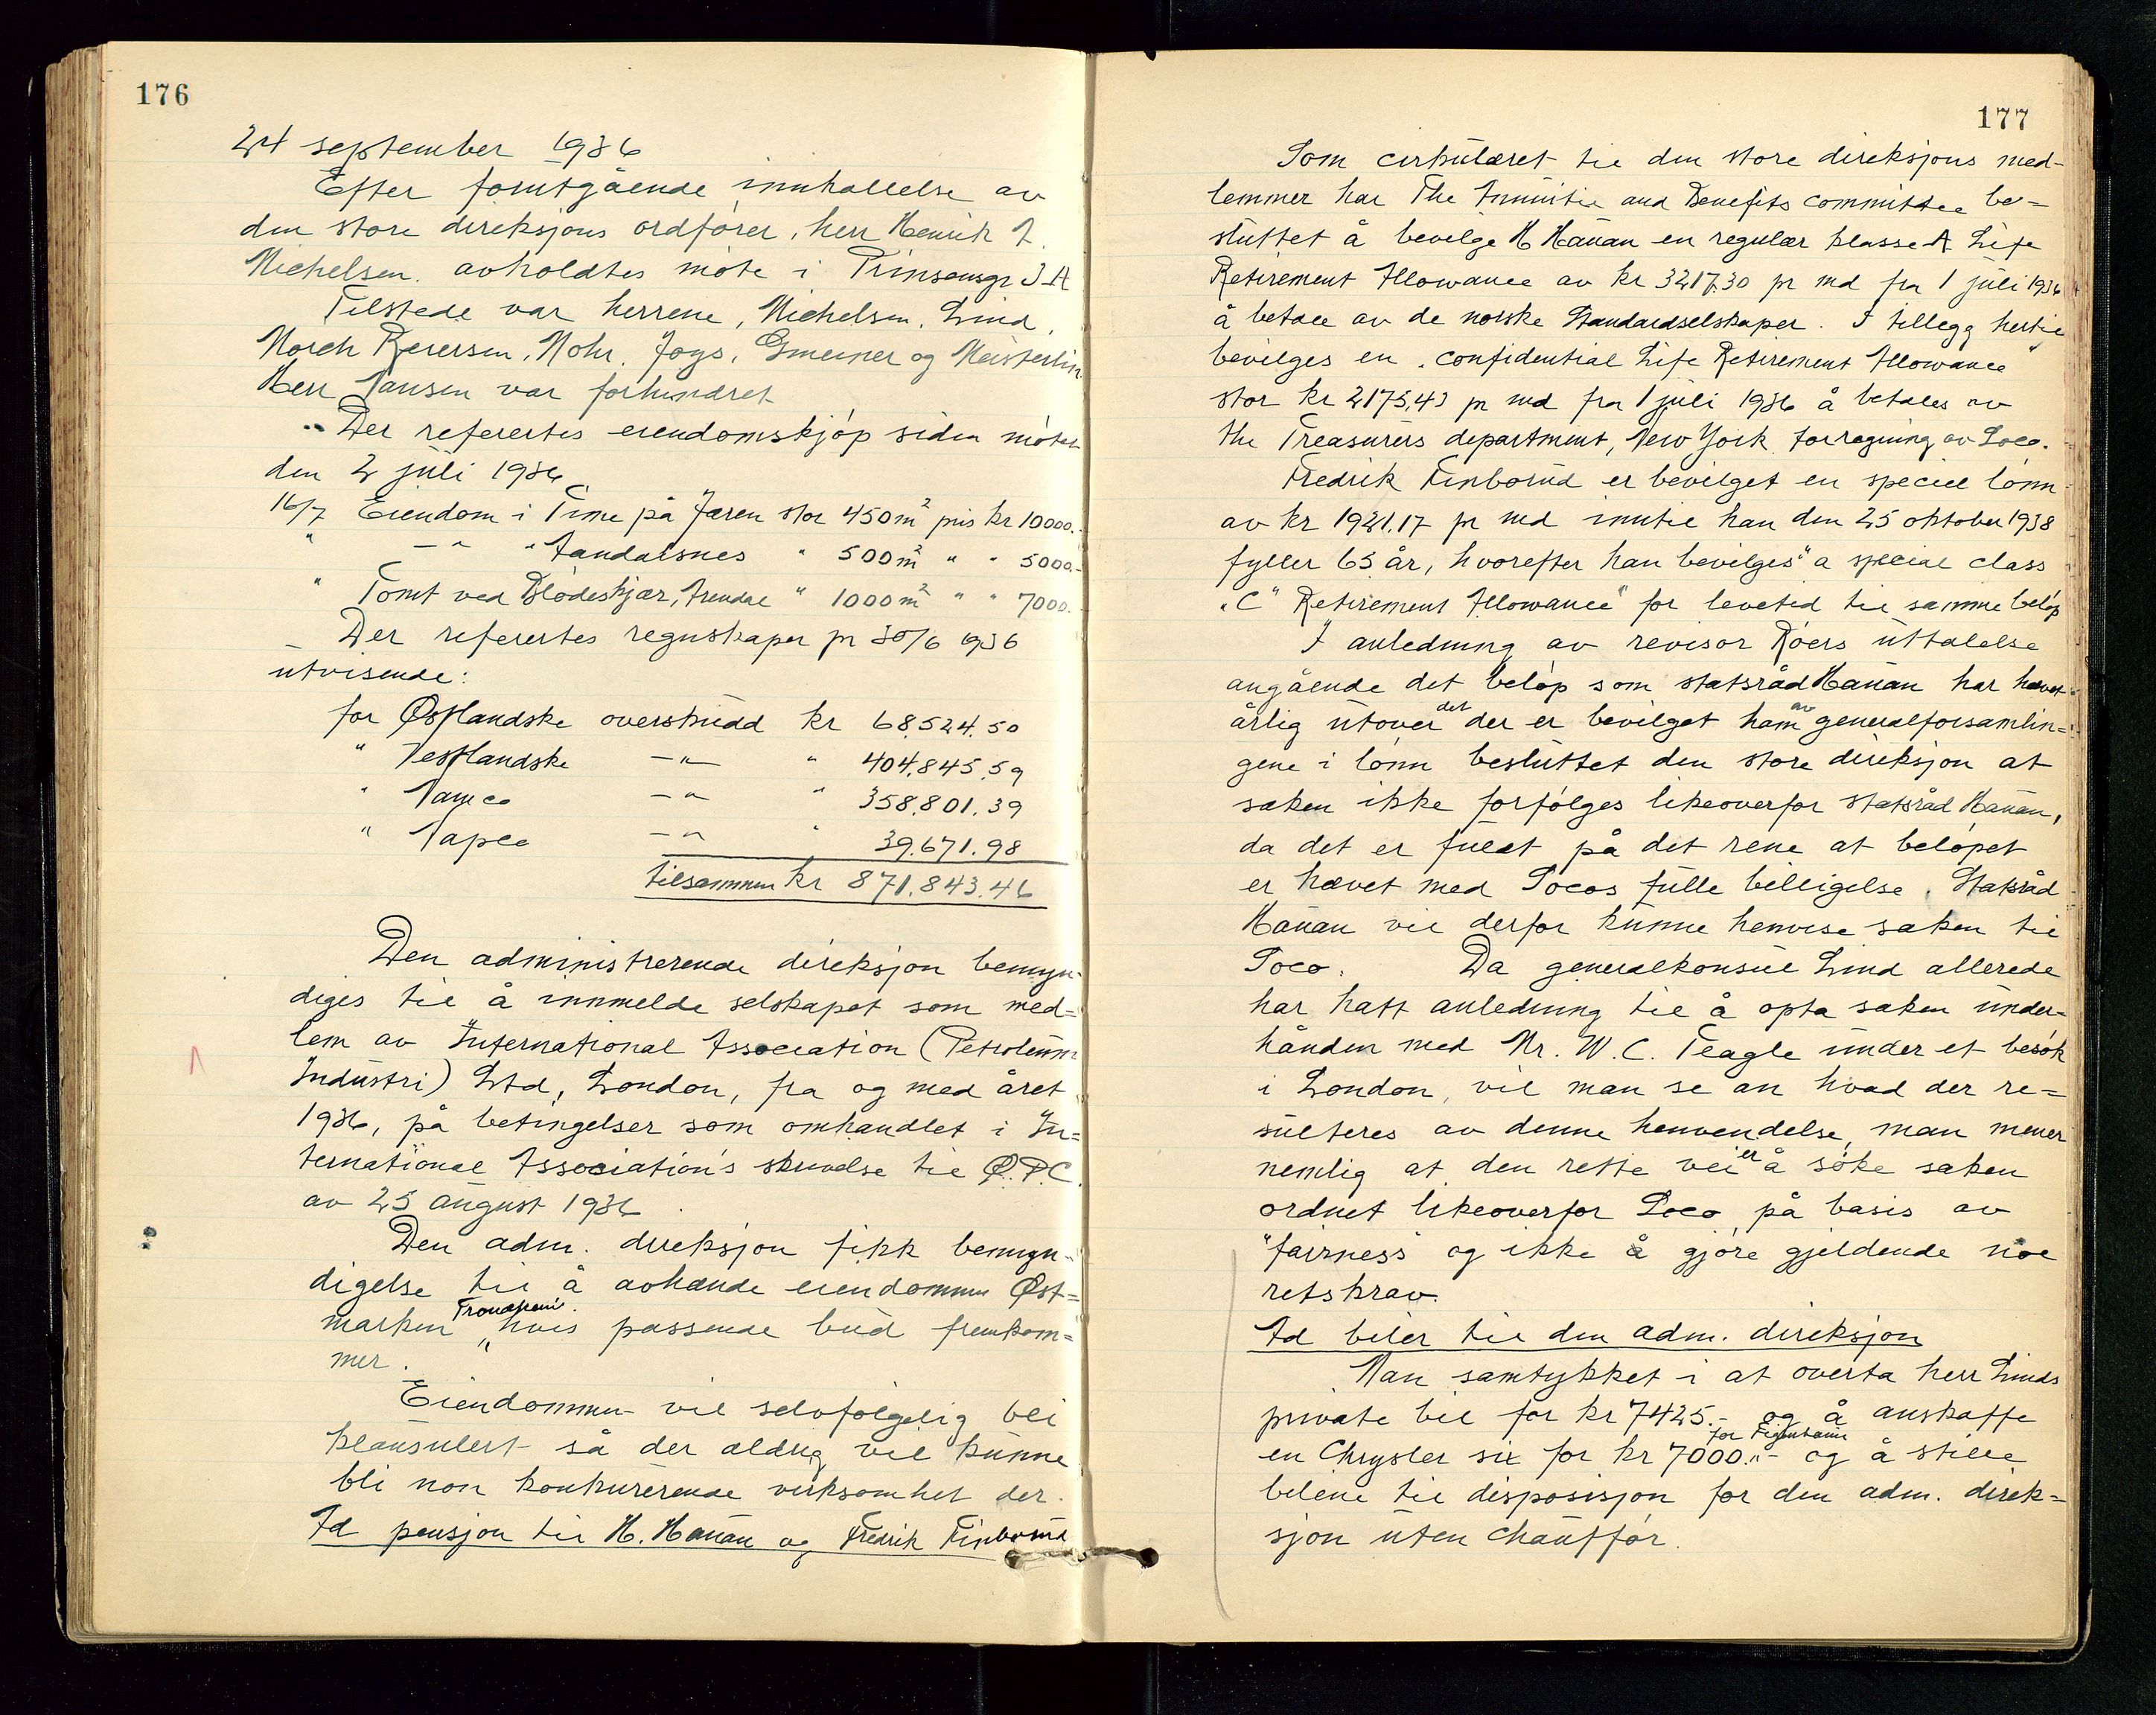 176
24 september 1936
Efter forutgående innkallelse av
den store direksjons ordfører, herr Henrik J.
Michelsen. avholdtes møte i Prinsensgt 3A
Tilstede var herrene, Michelsen. Lind,
Morch Reiersen, Mohr. Joys, Gmeiner og Meisterlin.
Herr Jansen var forhindret
Der refertes eiendomskjøp siden møtet
den 2 juli 1936
16/7 Eiendom i Time på Jæren stor 450m² pris kr 10000.-
" —"— " Åandalsnes " 500m² " " 5000.-
" Tomt ved Blødeskjær, Arendal " 1000m² " " 7000.-
Der refertes regnskaper pr 30/6 1936
utvisende:
for Østlandske overskudd kr 68.524.50
" Vestlandske —"— " 404.845.59
" Namco —"— " 358.801.39
" Napco —"— " 39.671.98
tilsammen kr 871.843.46
Den administrerende direksjon bemyn-
diges til å innmelde selskapet som med=
lem av International Association (Petroleum
Industri) Ltd, London, fra og med året
1936, på betingelser som omhandlet i In=
ternational Association's skrivelse til Ø.P.C.
av 25 august 1936
Den adm. direksjon fikk bemyn-
digelse til å avhende eiendommen Øst=
marken Trondheim. hvis passende bud fremkom=
mer.
Eiendommen vil selvfølgelig bli
klausulert så der aldrig vil kunne
bli noen konkurerende virksomhet der.
Ad pensjon til H. Hauan og Fredrik Finborud
177
Som cirkulæret til den store direksjons med-
lemmer har The Annuitie and Benefits committee be=
sluttet å bevilge H Hauan en regulær klasse A Life
Retirement Allowance av kr 3217.30 pr md fra 1 juli 1936
å betale av de norske Standardselskaper. I tillegg hertil
bevilges en "confidential Life Retirement Allowance"
stor kr 2175,43 pr md fra 1 juli 1936 å betales av
the Treasurers department, New York for regning av Soco.
Fredrik Finborud er bevilget en speciell lønn
av kr 1921.17 pr md inntil han den 25 oktober 1938
fyller 65 år, hvorefter han bevilges "a special class
"C" Retirement Allowance" for levetid til samme beløp
I anledning av revisor Røers uttalelse
angående det beløp som statsråd Hauan har hævet
årlig utover det der er bevilget ham av generalforsamlin=
gene i lønn besluttet den store direksjon at
saken ikke forfølges likeoverfor statsråd Hauan,
da det er fullt på det rene at beløpet
er hævet med Socos fulle billigelse. Statsråd
Hauan vil derfor kunne henvise saken til
Soco. Da generalkonsul Lind allerede
har hatt anledning til å opta saken under-
hånden med Mr. W.C. Teagle under et besøk
i London, vil man se an hvad der re=
sulteres av denne henvendelse, man mener
nemlig at den rette vei er å søke saken
ordnet likeoverfor Soco på basis av
"fairness" og ikke å gjøre gjeldende noe
retskrav.
Ad biler til den adm. direksjon
Man samtykket i at overta herr Linds
private bil for kr 7425.- og å anskaffe
en Chrysler six for kr 7000.- for Eigenheim og å stille
bilene til disposisjon for den adm. direk=
sjon uten chauffør.